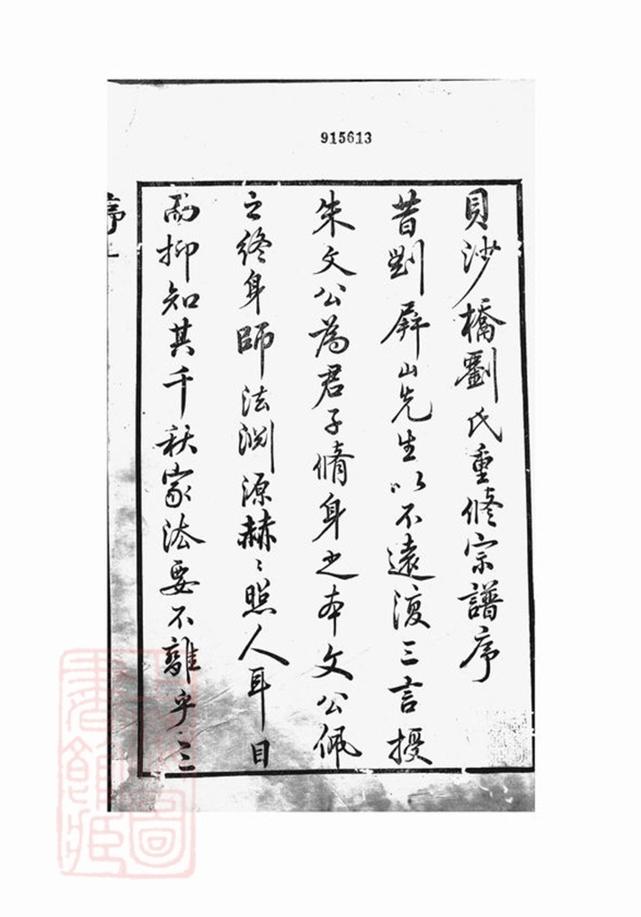 915613
貝沙橋劉氏重修宗譜序
昔劉屏山先生以不遠復三言授
朱文公為君子脩身之本文公佩
之終身師法淵源赫〻照人耳目
而抑知其千秋家法要不離乎三
序一